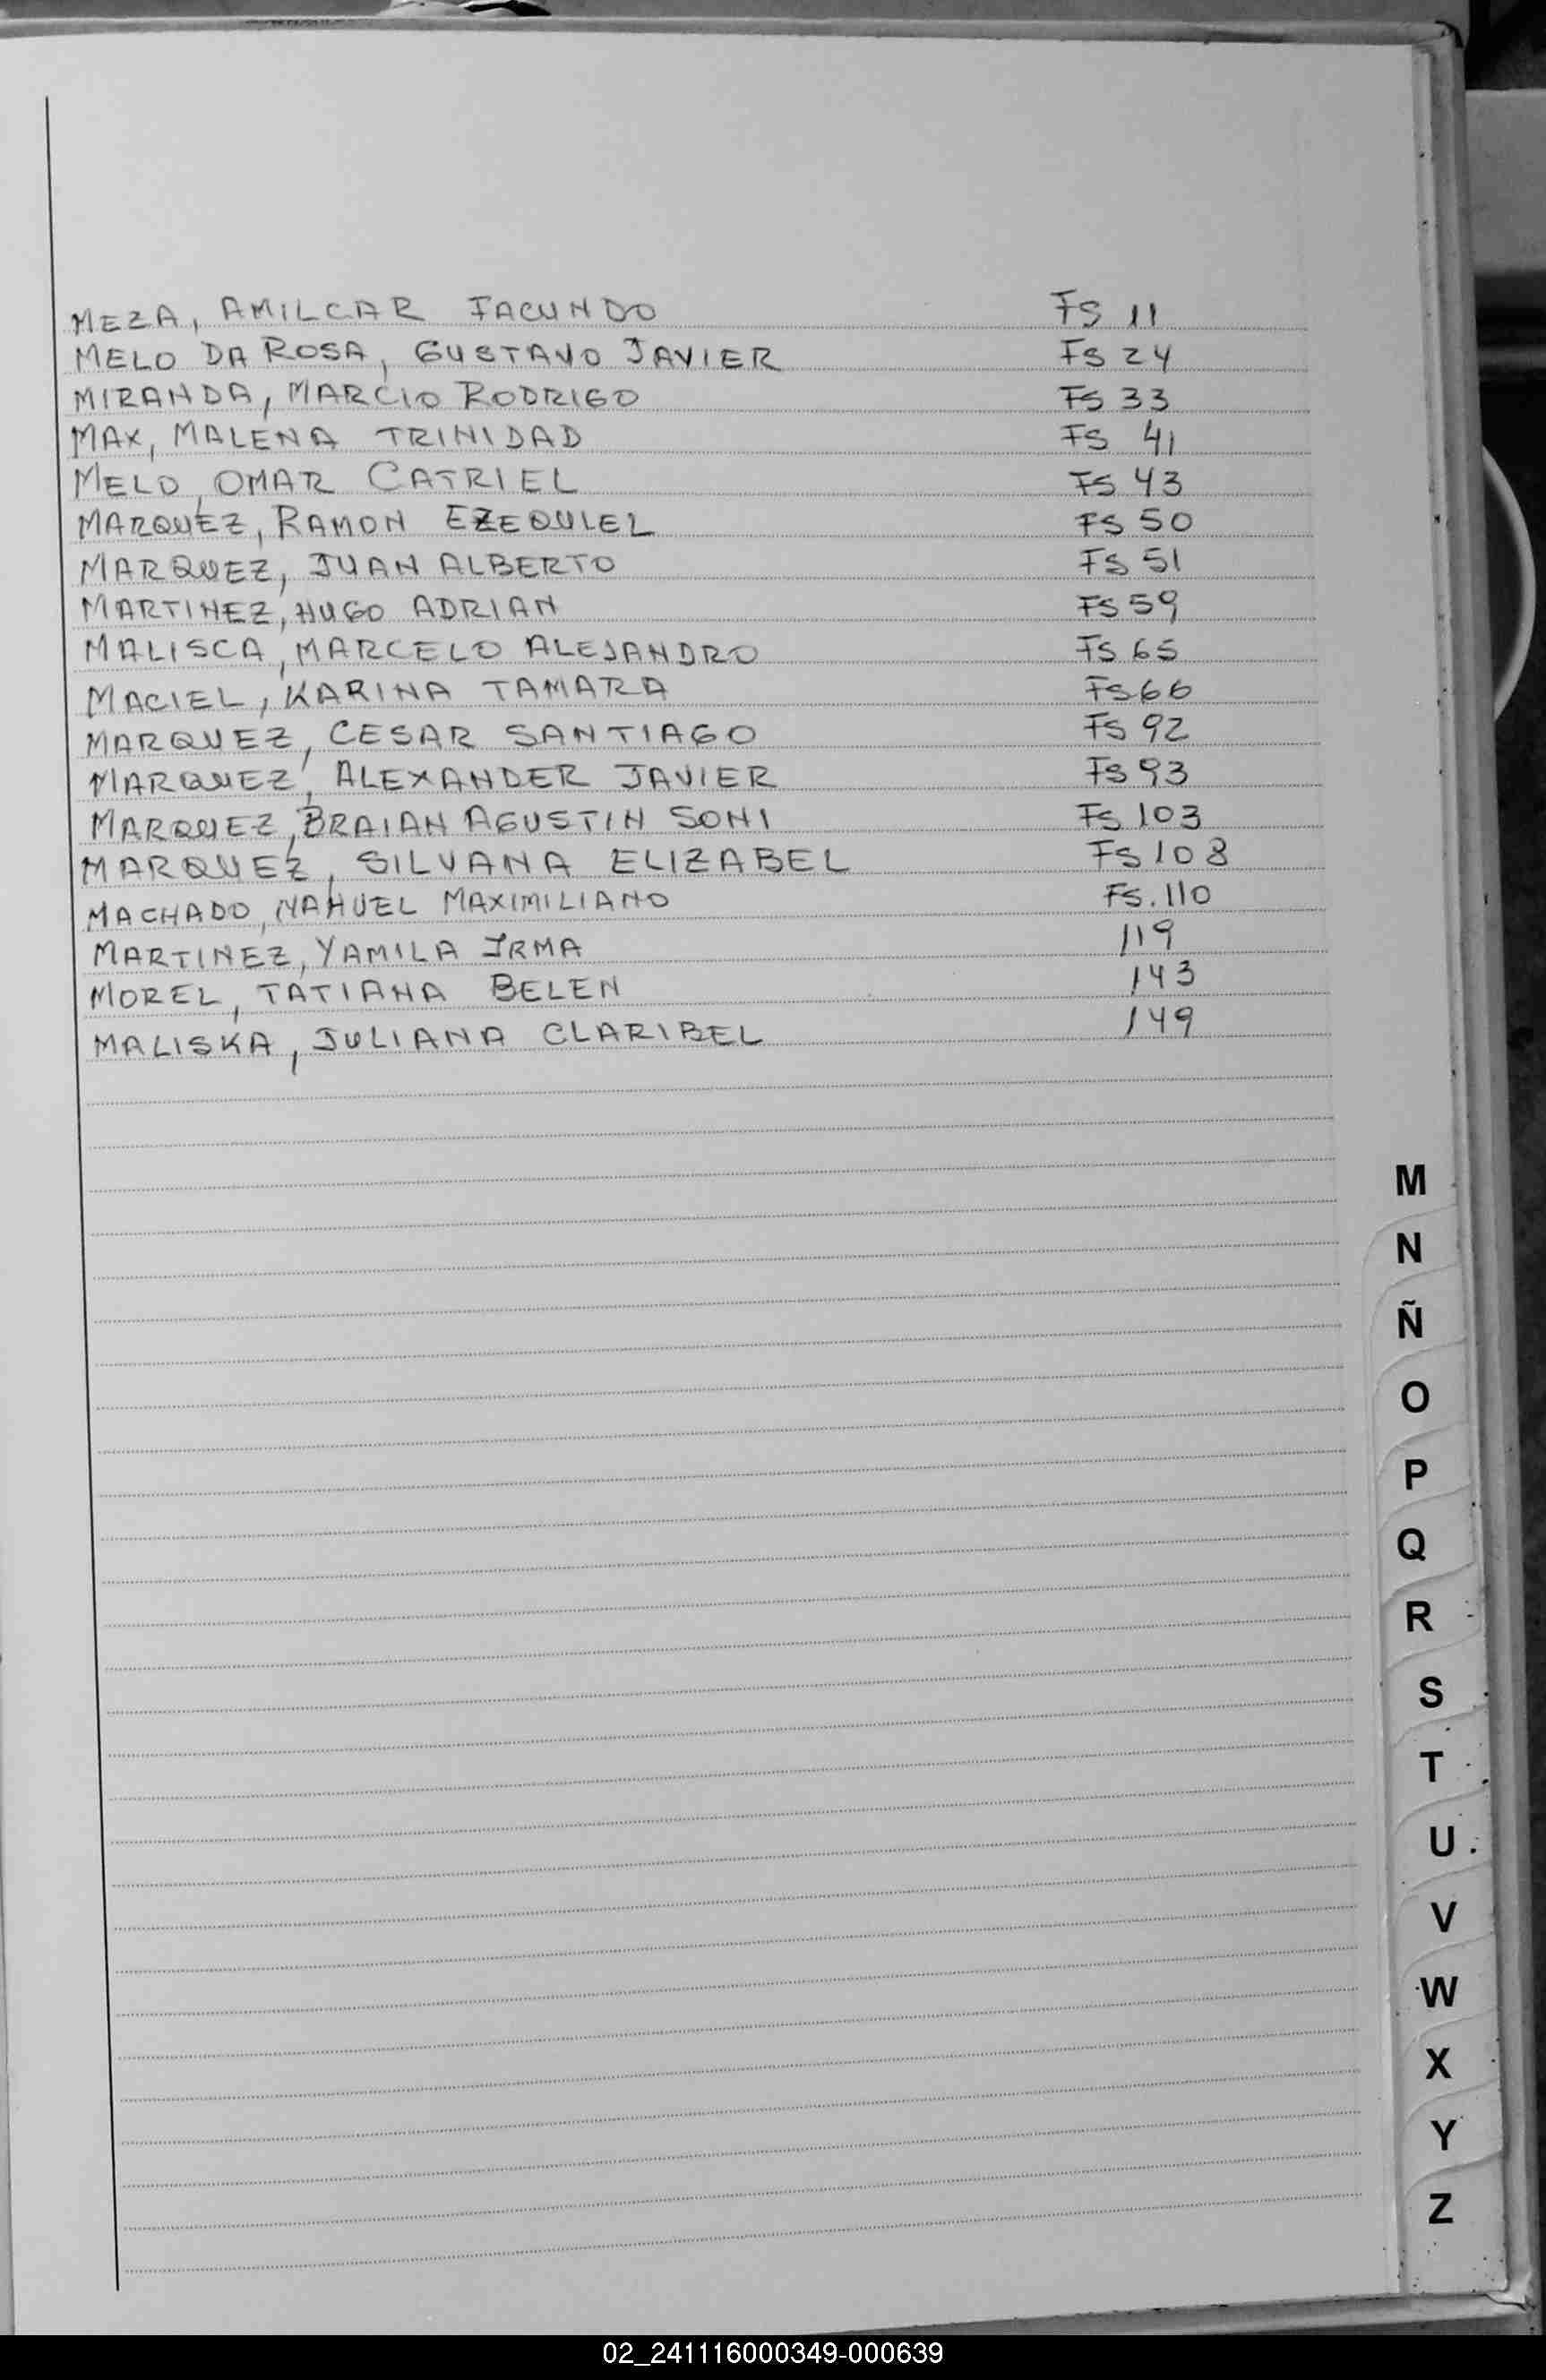 MEZA, AMILCAR FACUNDO FS 11
MELO DA ROSA, GUSTAVO JAVIER FS 24
MIRANDA, MARCIO RODRIGO FS 33
MAX, MALENA TRINIDAD FS 41
MELO, OMAR CATRIEL FS 43
MARQUEZ, RAMON EZEQUIEL FS 50
MARQUEZ, JUAN ALBERTO FS 51
MARTINEZ, HUGO ADRIAN FS 59
MALISCA, MARCELO ALEJANDRO FS 65
MACIEL, KARINA TAMARA FS 66
MARQUEZ, CESAR SANTIAGO FS 92
MARQUEZ, ALEXANDER JAVIER FS 93
MARQUEZ, BRAIAN AGUSTIN SONI FS 103
MARQUEZ, SILVANA ELIZABEL FS 108
MACHADO, NAHUEL MAXIMILIANO FS. 110
MARTINEZ, YAMILA IRMA 119
MOREL, TATIANA BELEN 143
MALISKA, JULIANA CLARIBEL 149
M
N
Ñ
O
P
Q
R
S
T
U
V
W
X
Y
Z
02_241116000349-000639